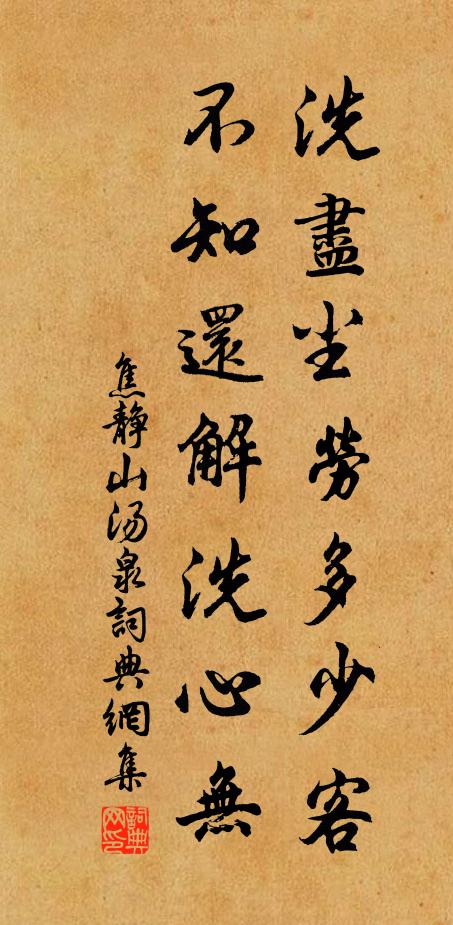 洗盡尘勞多少客
不知還解洗心無
焦静山汤泉詞典網集
詞典网印